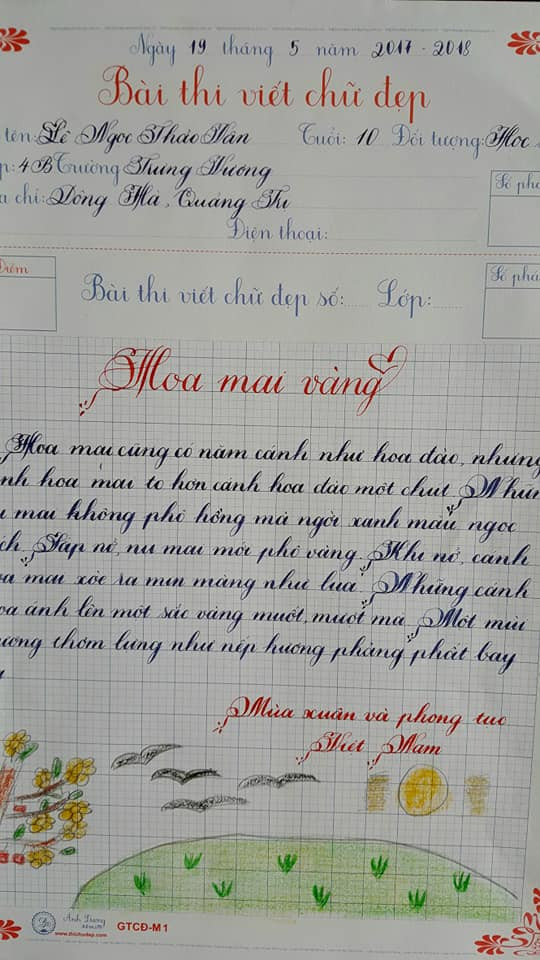 Ngày 19 tháng 5 năm 2017 - 2018
Bài thi viết chữ đẹp
tên: Lê Ngọc Thảo Vân Tuổi: 10 Đối tượng: Học
p: 4B Trường Trưng Vương
a chỉ: Đông Hà, Quảng Trị
Điện thoại:
Số phá
Điểm
Bài thi viết chữ đẹp số: Lớp:
Số phá
Hoa mai vàng
Hoa mai cũng có năm cánh như hoa đào, nhưng
nh hoa mai to hơn cánh hoa đào một chút. Nhữn
ụ mai không phô hồng mà ngời xanh màu ngọc
ch. Sắp nở, nụ mai mới phô vàng. Khi nở, cánh
a mai xòe ra mịn màng như lụa. Những cánh
oa ánh lên một sắc vàng muốt, mượt mà. Một mùi
ương thơm lựng như nếp hương phảng phất bay
Mùa xuân và phong tục
Việt Nam
Ánh Dương
www.thichudep.com
GTCĐ-M1